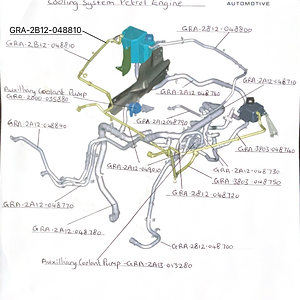 Cooling System Petrol Engine
AUTOMOTIVE
GRA-2B12-048810
GRA-2B12-048800
GRA-2B12-048810
Auxilliary Coolant Pump
GRA-2A12-048740
GRA-2A12-048790
GRA-2A12-048840
GRA-3B03-048740
GRA-2A12-049010
GRA-2B12-048730
GRA-3B03-048750
GRA-2A12-048770
GRA-2B12-048720
GRA-2A12-048780
GRA-2B12-048700
Auxilliary Coolant Pump - GRA-2A13-013280